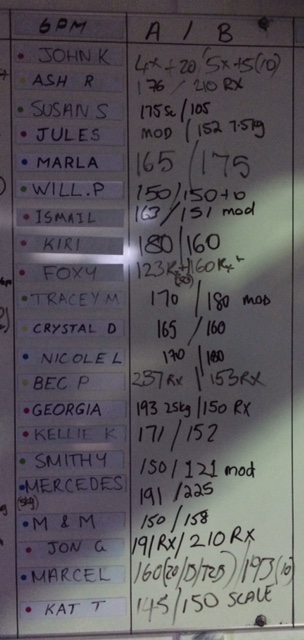 6PM A / B
JOHN K 4x+20/5x+5(10)
ASH R 176 / 210 RX
SUSAN S 175sc/105
JULES MOD / 152 7.5kg
MARLA 165 / 175
WILL.P 150/150+10
ISMAIL 163/151 mod
KIRI 180/160
FOXY 123Rx+/160Rx+
TRACEY M 170 / 180 MOD
CRYSTAL D 165 / 160
NICOLE L 170 / 180
BEC P 237RX / 153RX
GEORGIA 193 25kg/150 RX
KELLIE K 171 / 152
SMITHY 150/121 mod
MERCEDES 191 /225
M & M 150 / 158
JON G 191RX/ 210 RX
MARCEL 160(20/15/T2B) /193(10)
KAT T 145/150 SCALE